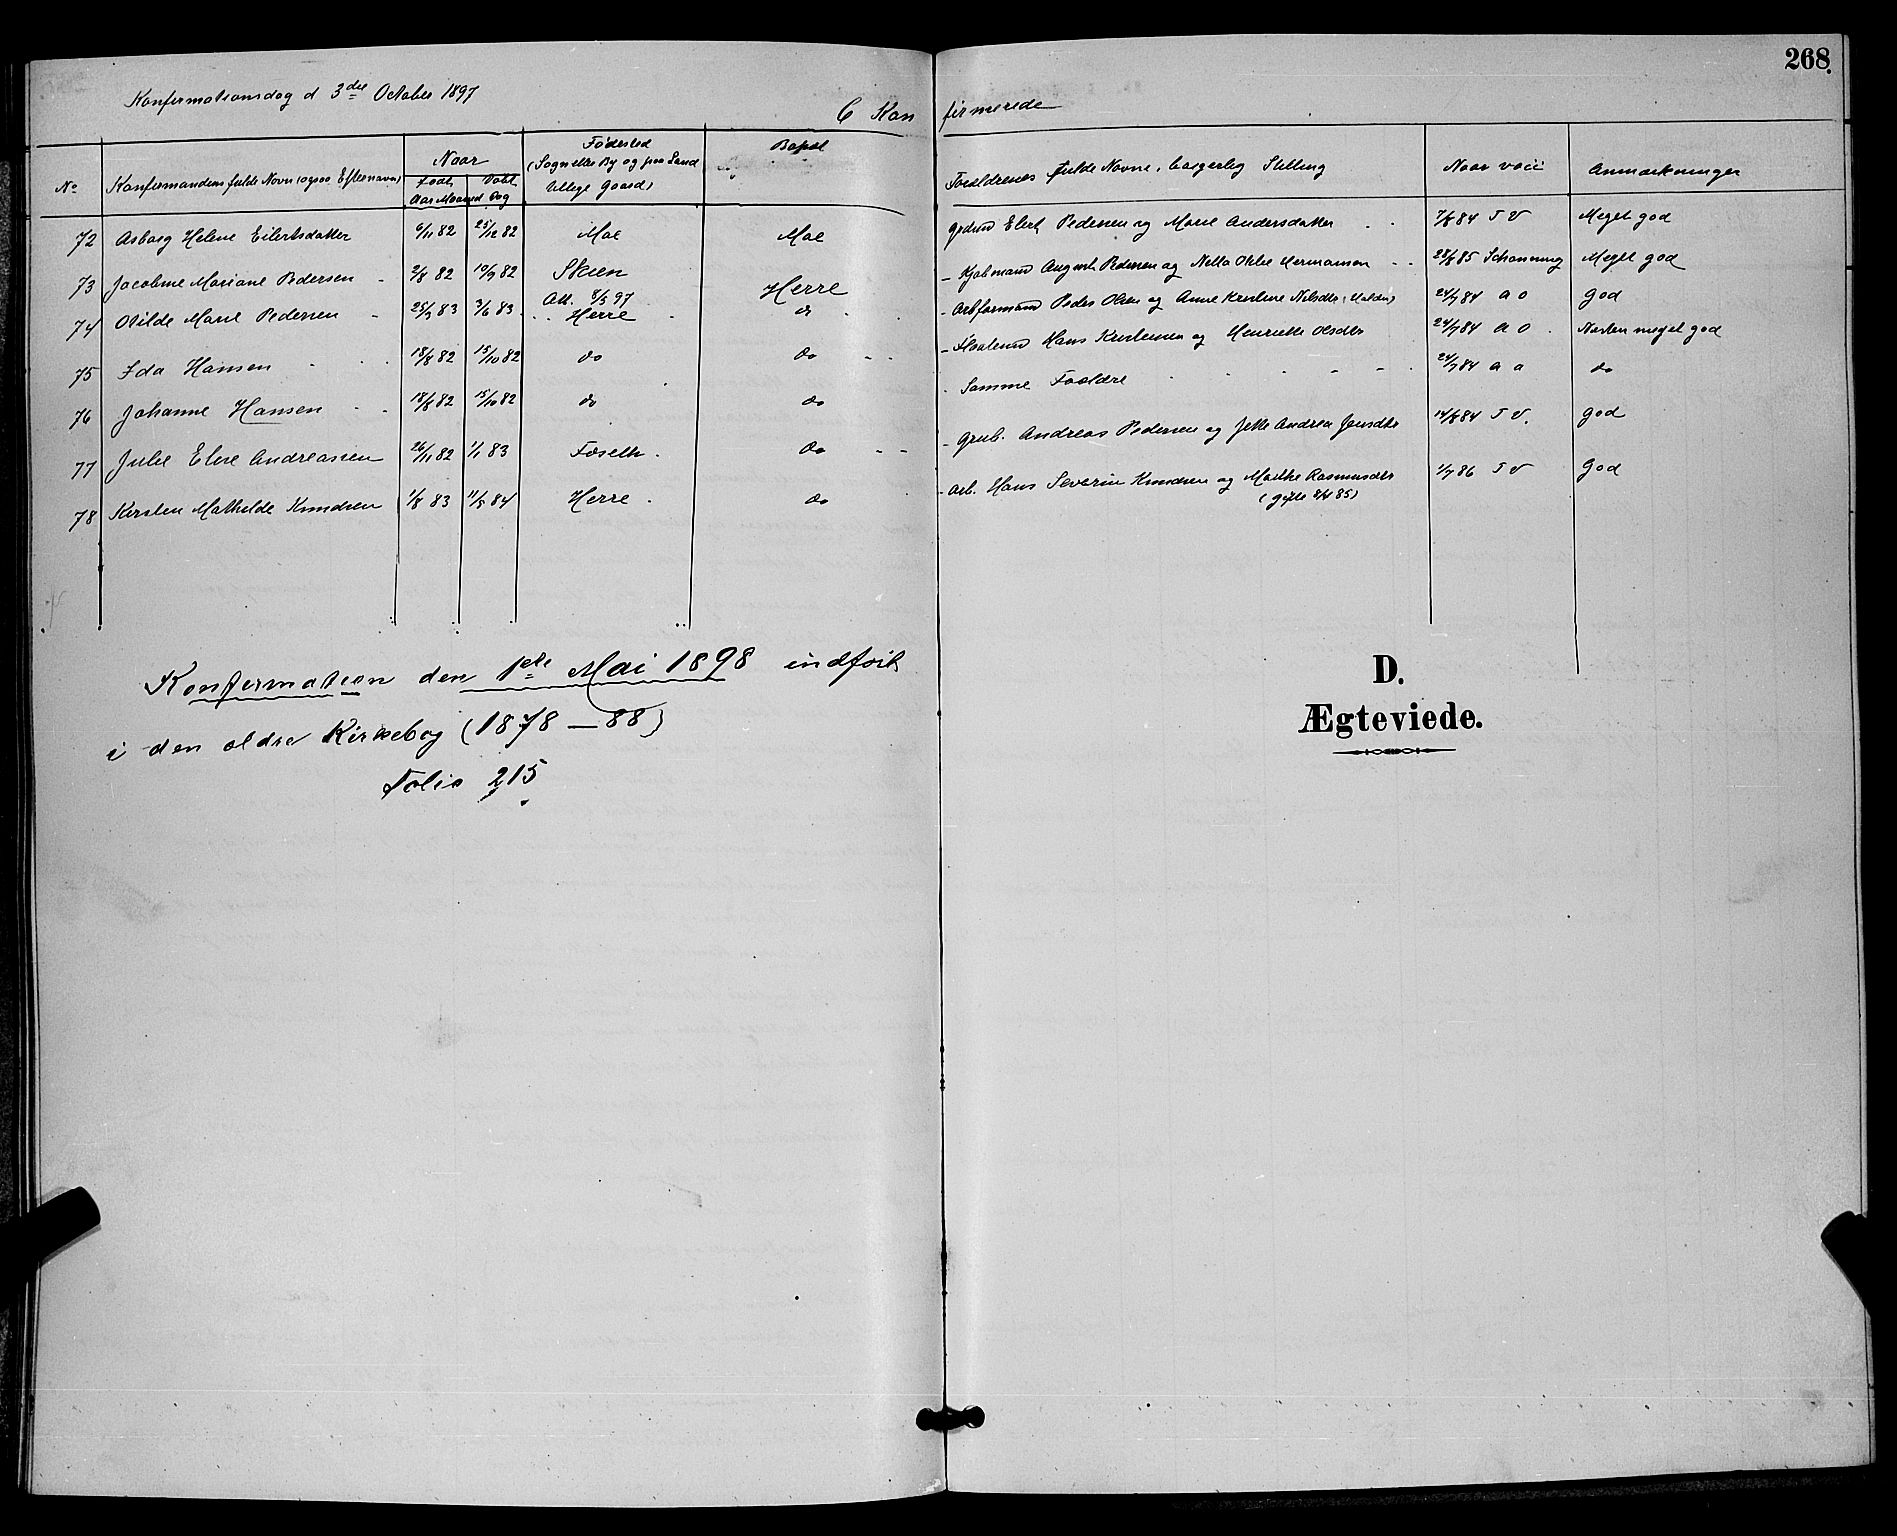 268.
Konfirmationsdag d 3die October 1897
C Kon firmerede
No Konfirmandens fulde Navn (ogsaa Efternavn) Naar Født Døbt Aar Maaned Dag Fødested (Sogn eller By og paa Land tillige Gaard) Bopæl Forældrenes fulde Navne, borgerlig Stilling Naar vacc Anmærkninger
72 Asborg Helene Eilertsdatter 6/11 82 25/12 82 Moe Moe Eilert Pedersen og Marie Andersdatter 7/8 84 T V Meget god
73 Jacobine Mariane Pedersen 2/8 82 10/9 82 Skien Att. 8/5 97 Herre Kjøbmand August Pedersen og Netta Olive Hermansen 28/8 85 Schonning Meget god
74 Otilde Marie Pedersen 25/3 83 3/6 83 Herre do Arbformand Peder Olsen og Anne Kirstine Nilsdtr 24/7 84 a o God
75 Ida Hansen 18/8 82 15/10 82 do do Hans Kristensen og Henriette Olsdtr 24/7 84 a o Næsten meget god
76 Johanne Hansen 18/8 82 15/10 82 do do Samme Forældre 24/7 84 a o do
77 Julie Elise Andreassen 26/11 82 1/1 83 Foseth do Grub. Andreas Pedersen og Jette Andrea Jensdtr 14/8 84 T V. God
78 Kirsten Mathilde Knudsen 1/8 83 11/5 84 Herre do Arb. Hans Severin Knudsen og Marthe Rasmusdtr 1/7 86 T V God
(gifte 8/4 85)
Konfirmation den 1ste Mai 1898 indført
i den ældre Kirkebog (1878 — 88)
Folio 215
D.
Ægteviede.